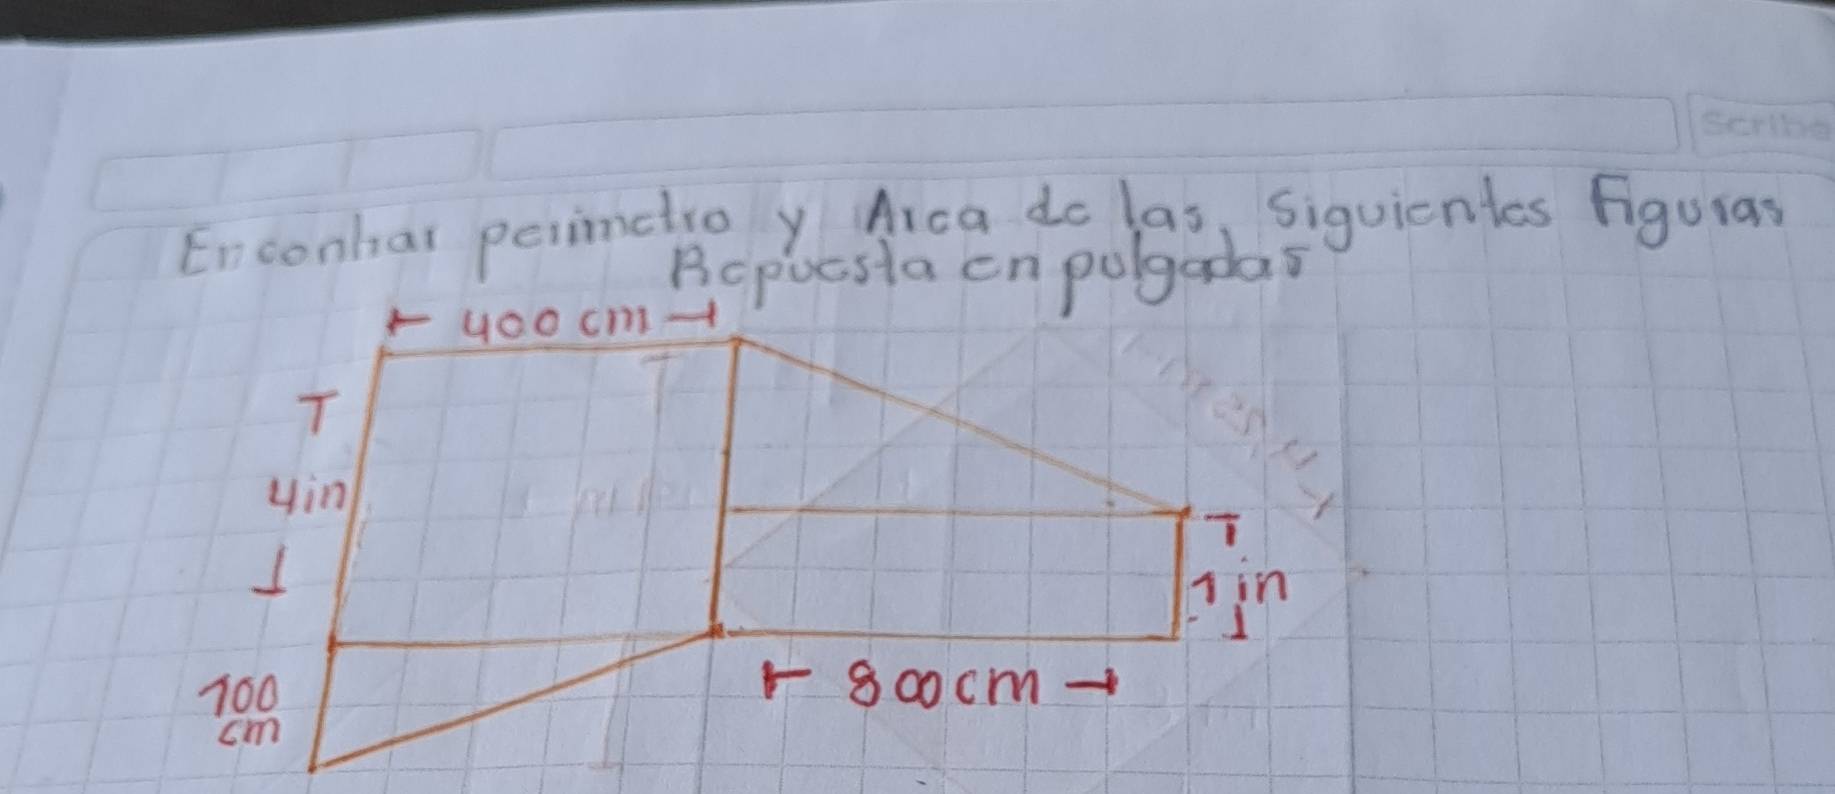 Scribe
Encontrar perimetro y Area de las siguientes figuras
Repuesta en pulgadas
400 cm
4in
1 in
100
cm
800cm